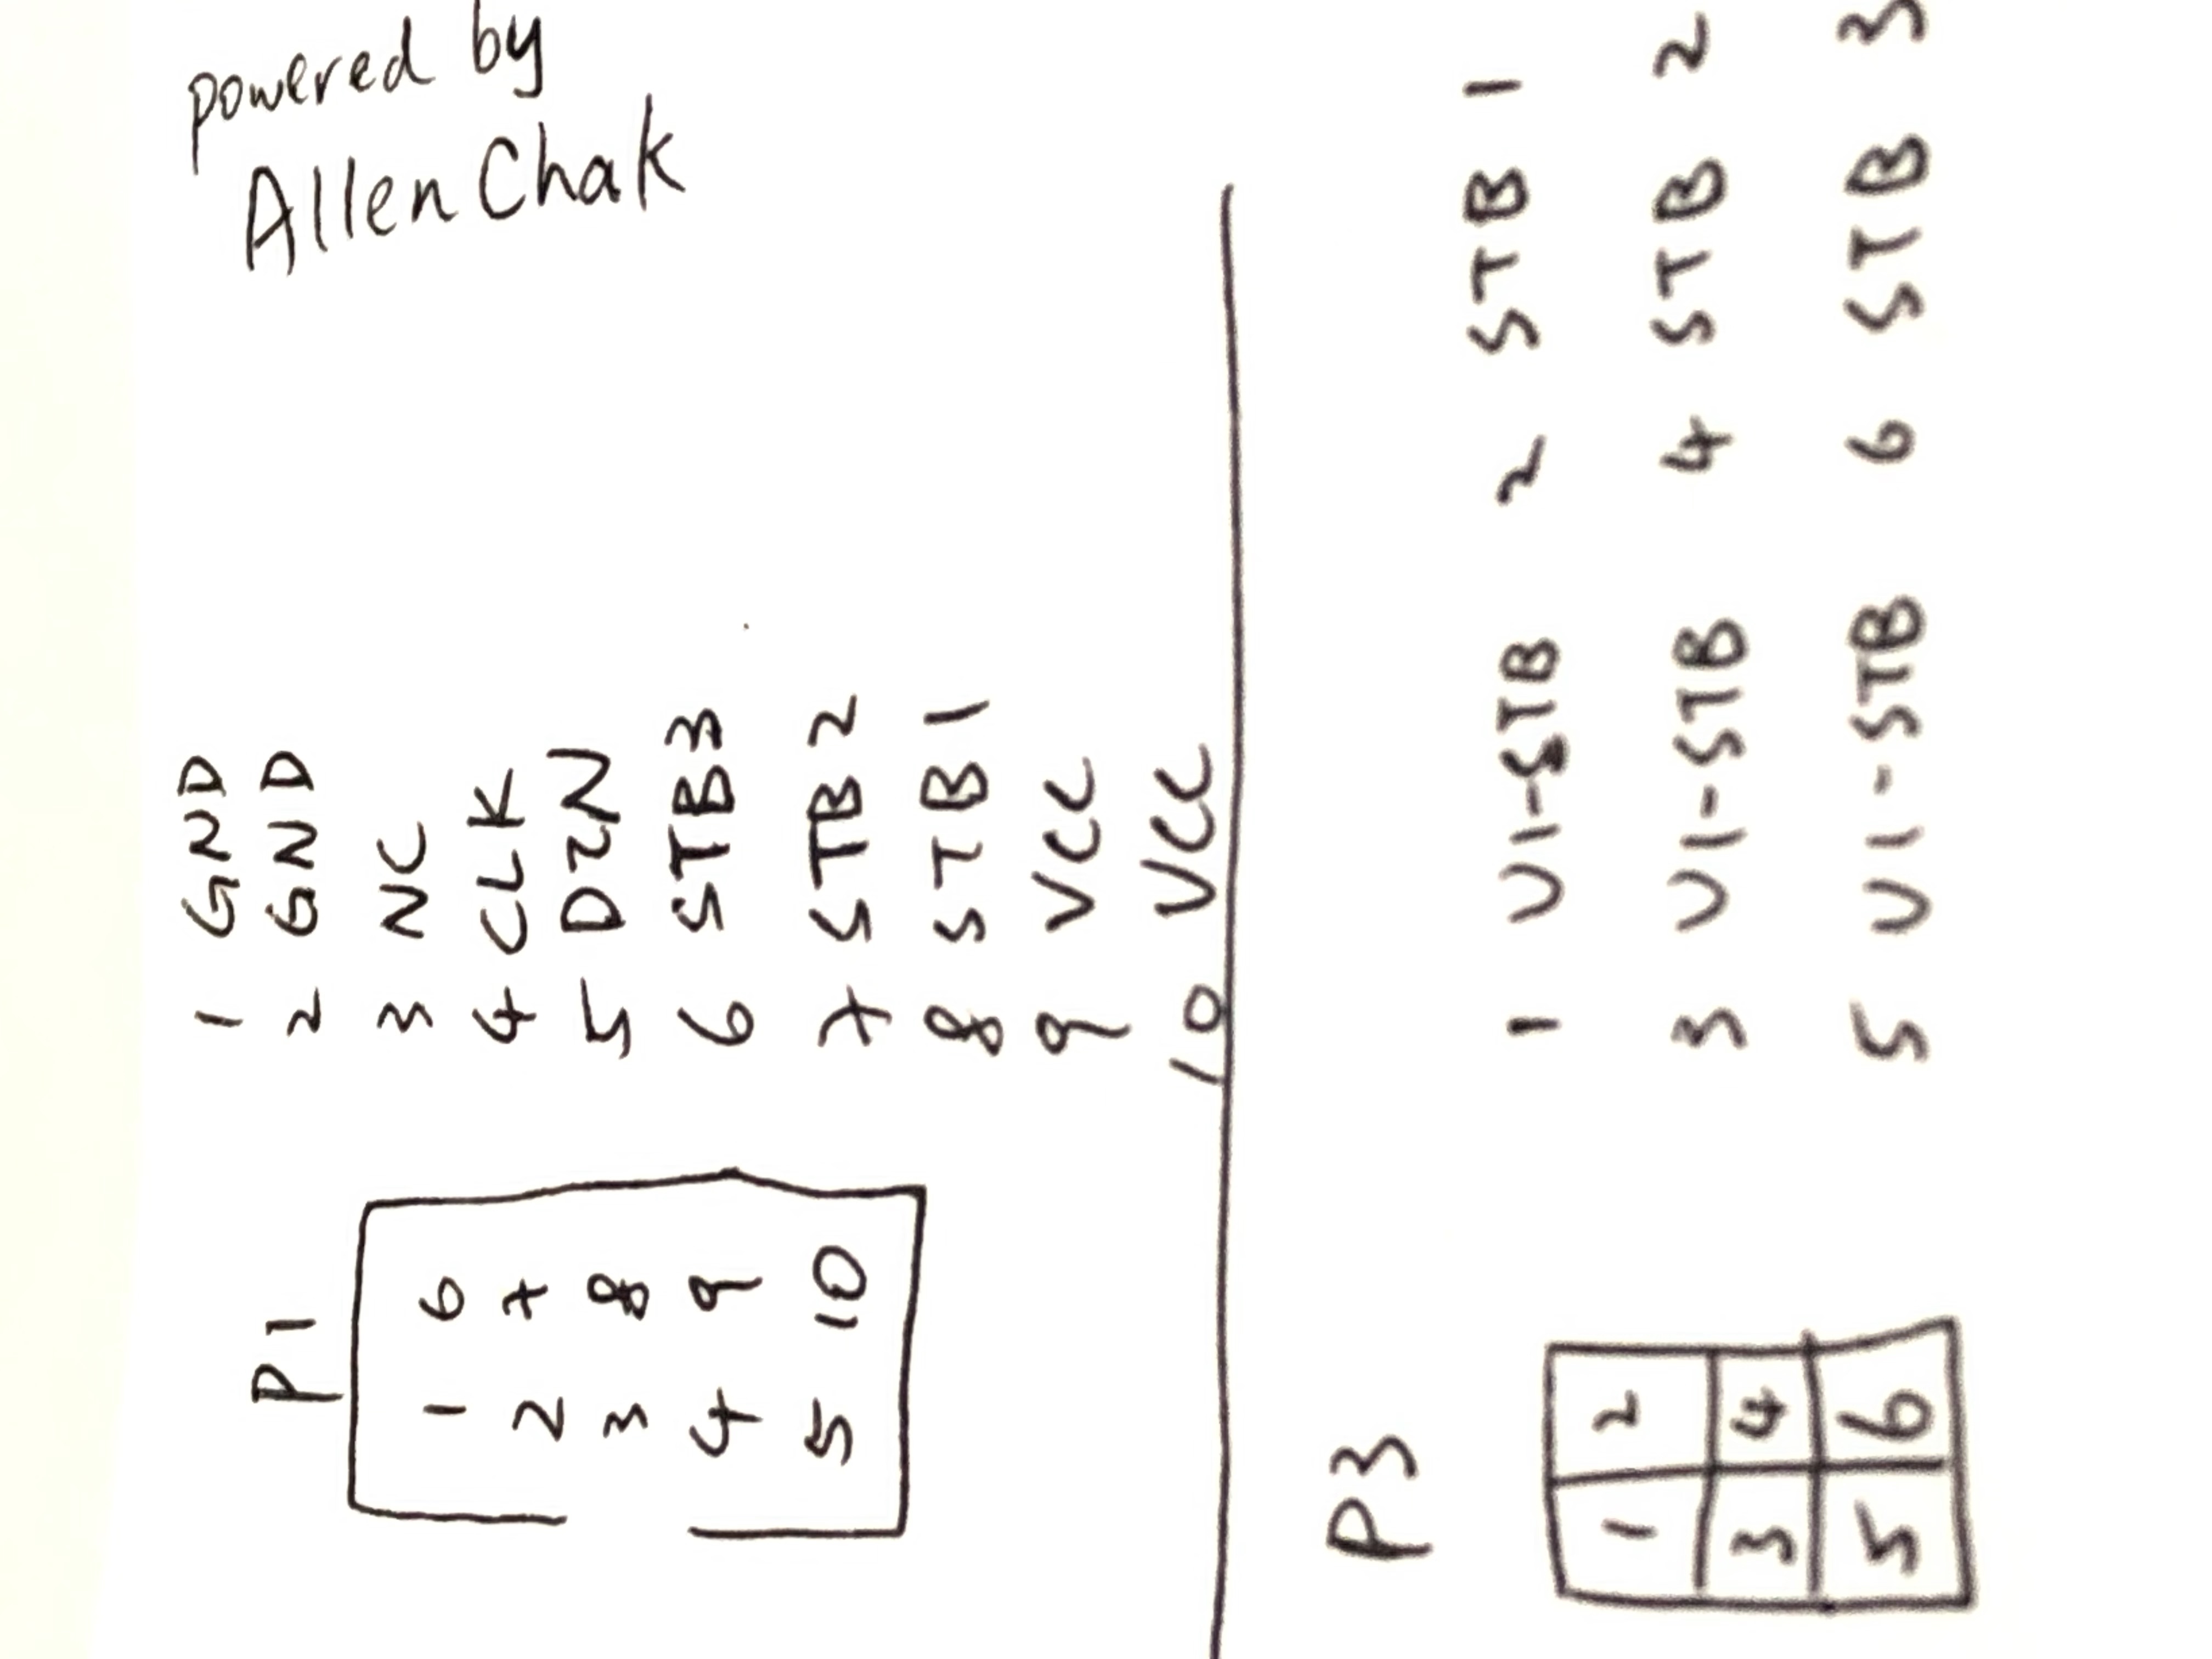 powered by
AllenChak
P1
1 6
2 7
3 8
4 9
5 10
1 GND
2 GND
3 NC
4 CLK
5 DIN
6 STB3
7 STB2
8 STB1
9 VCC
10 VCC
P3
1 2
3 4
5 6
1 U1-STB 2 STB 1
3 U1-STB 4 STB 2
5 U1-STB 6 STB 3